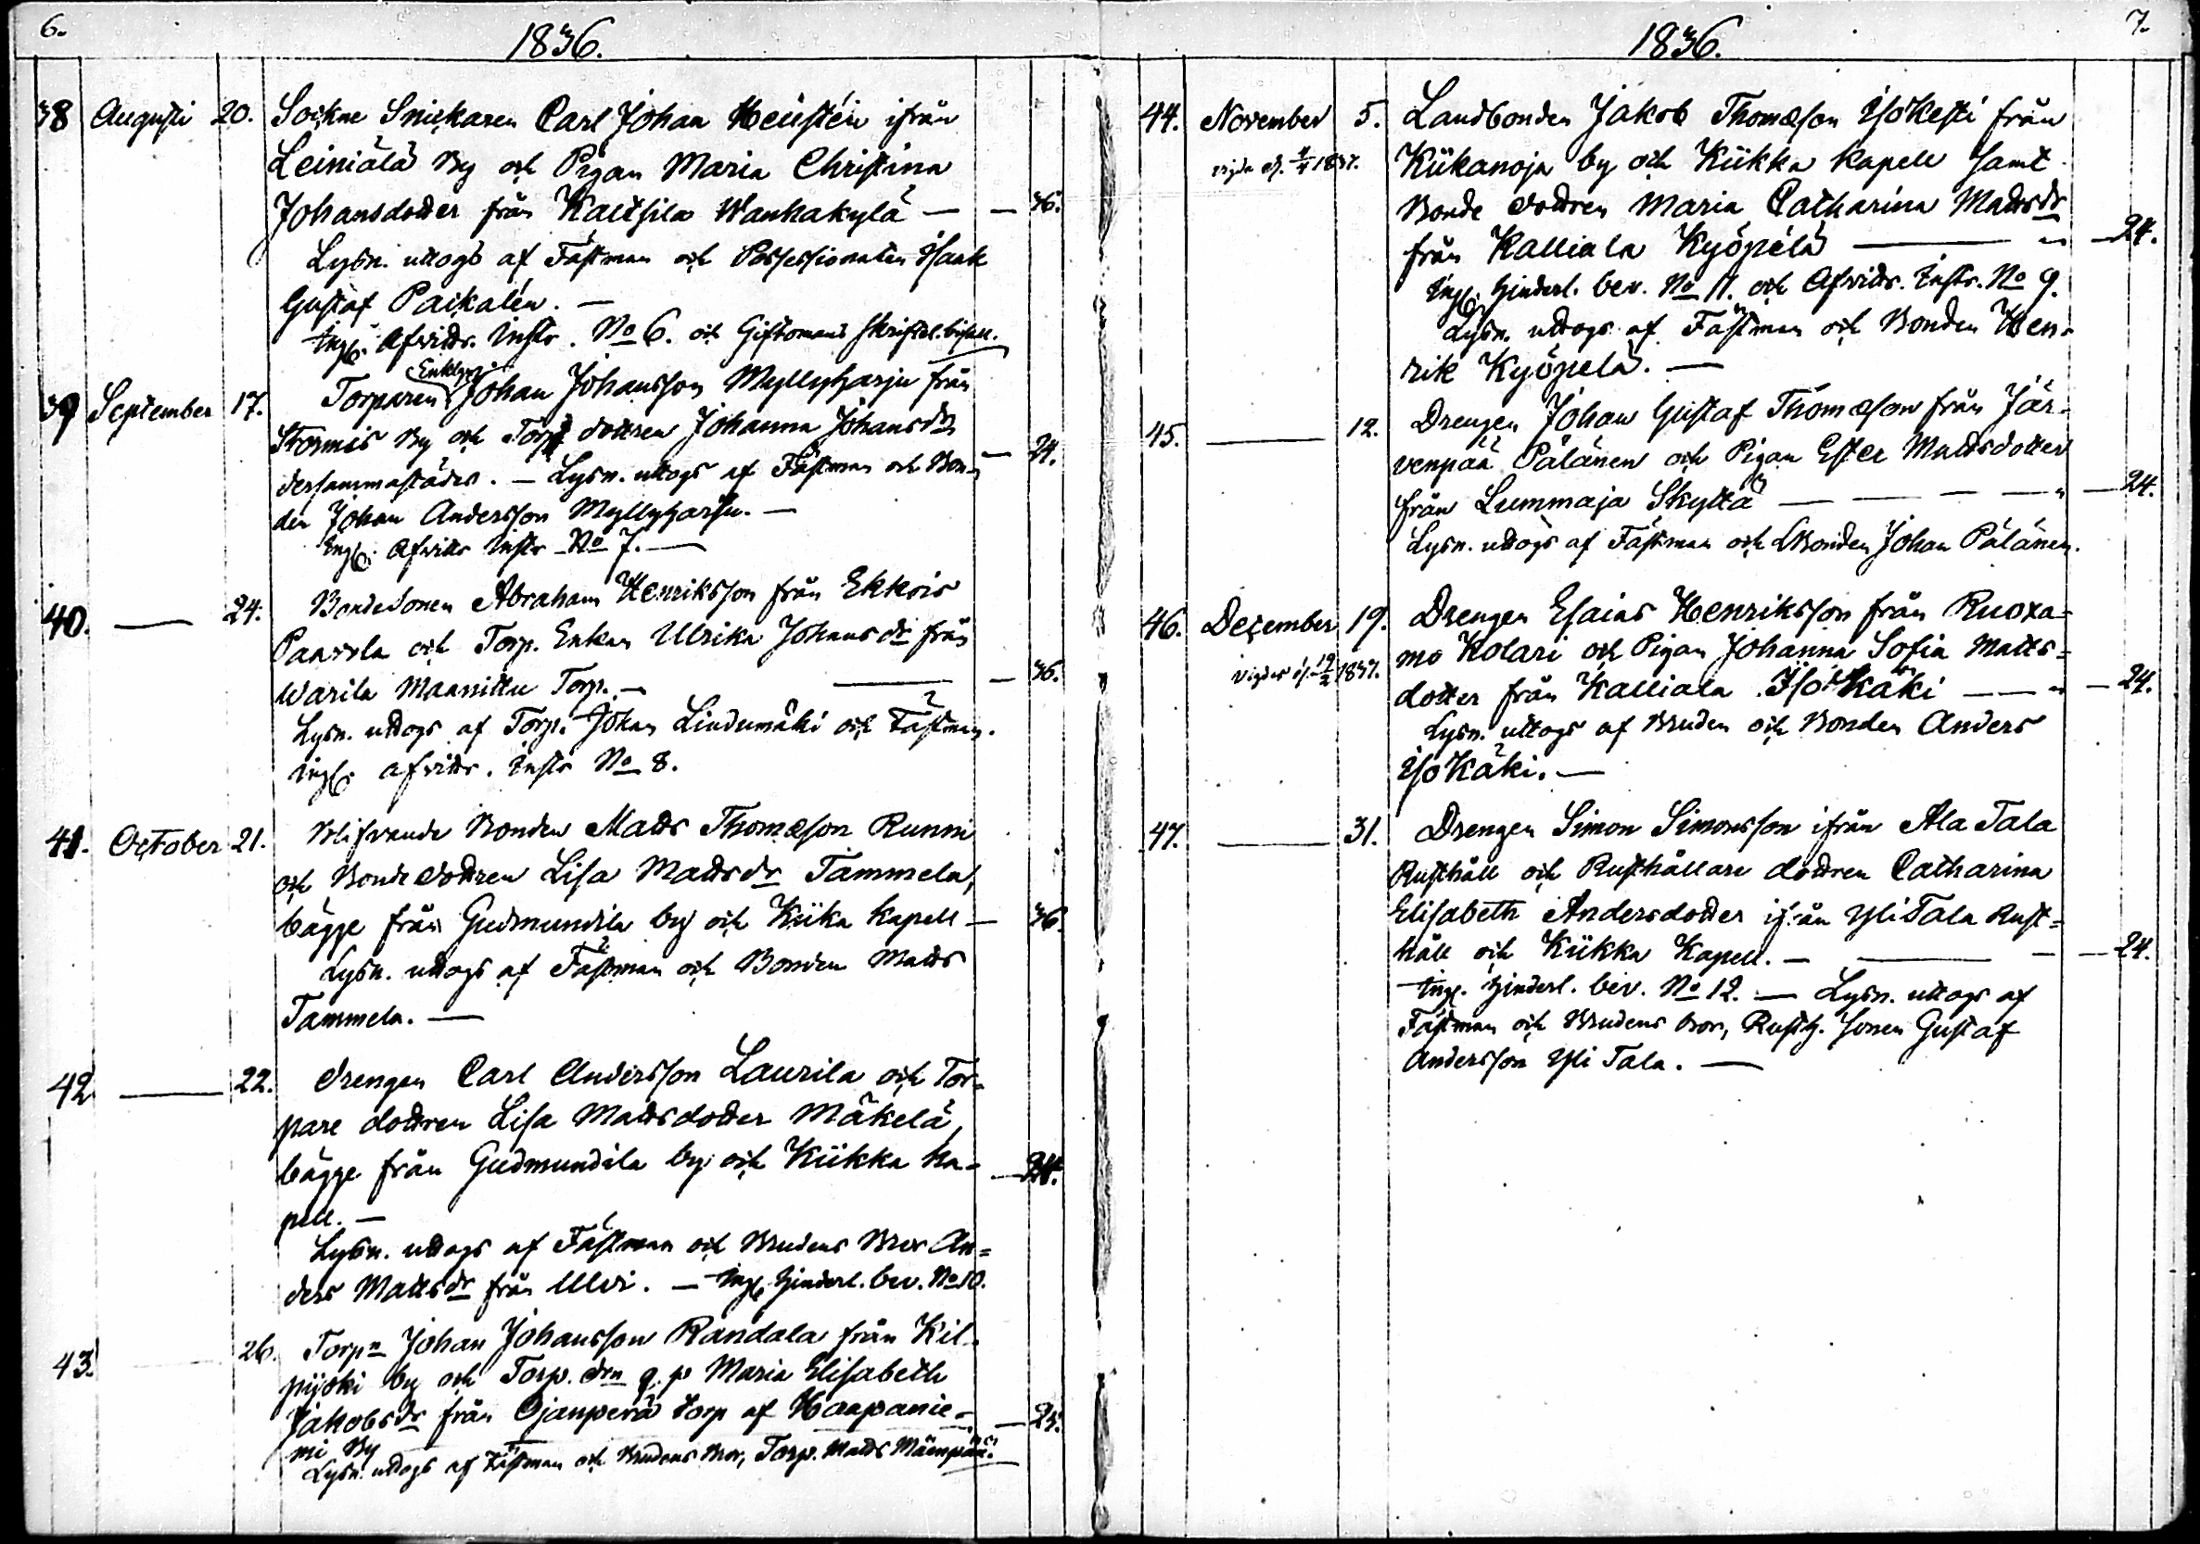 6.
1836.
38 Augusti 20. Sockne Snickaren Carl Johan Heustén ifrån
Leiniälä By och Pigan Maria Christina
Johansdotter från Kaltsila Wanhakylä — — 36.
Lysn. uttogs af Fästman och Possessionaten Isaak
Gustaf Paikalén. —
Ingl. Afvittr. Instr. No 6. och Giftomans skriftel. bifall.
Enkling
39 September 17. Torparen Johan Johansson Myllyharju från
Stormis By och Torp dottren Johanna Johansdr
dersammastädes. — Lysn. uttogs af Fästman och Bon- — 24.
den Johan Andersson Myllyharju. —
Ingl. Afvittr Instr No 7. —
40. — 24. Bondesonen Abraham Henriksson från Ekkois
Paavola och Torp. Enkan Ulrika Johansdr från
Warila Maanittu Torp. — — — 36.
Lysn. uttogs af Torp. Johan Lindumäki och Fästman.
Ingl. afvittr. Instr No 8.
41. October 21. Blifvande Bonden Matts Thomæson Runni
och Bonde dottren Lisa Mattsdr Tammela,
bägge från Gudmundila by och Kiika kapell — 36.
Lysn. uttogs af Fästman och Bonden Matts
Tammela. —
42 — 22. drengen Carl Andersson Laurila och Tor-
pare dottren Lisa Mattsdotter Mäkelä,
bägge från Gudmundila by och Kiikka ka- — 24.
pell. —
Lysn. uttogs af Fästman och Brudens Bror An=
ders Mattsdr från Ulvi. — Ingl. hinderl. bev. No 10.
43. 26. Torpn Johan Johansson Randala från Kil-
pijoki by och Torp. drn q.p Maria Elisabeth
Jakobsdr från Ojanperä torp af Haapanie- — 24.
mi By
Lysn. uttogs af Fästman och Brudens Bror, Torp. Matts Mäenpää.
7.
1836.
44. November 5. Landbonden Jakob Thomæson Isokesti från
vigda d. 1837. Kiikanoja by och Kiikka kapell samt
Bonde dottren Maria Catharina Mattsdr
från Kalliala Kyöpelä — " — 24.
Ingl. hinderl. bev. No 11. och Afvittr. Instr. No 9.
Lysn. uttogs af Fästman och Bonden Hen-
rik Kyöpelä. —
45. — 12. Drengen Johan Gustaf Thomæson från Jär-
venpää Pälänen och Pigan Ester Mattsdotter
från Lummaja Skyttä — — — — " — 24.
Lysn. uttogs af Fästman och LBonden Johan Pälänen.
46. December 19. Drengen Esaias Henriksson från Ruoxa-
vigdes d. 12/2 1837. mo Kolari och Pigan Johanna Sofia Matts=
dotter från Kalliala Iso Käki — — " — 24.
Lysn. uttogs af Bruden och Bonden Anders
Iso Käki. —
47. — 31. Drengen Simon Simonsson ifrån Ala Tala
Rusthåll och Rusthållare dottren Catharina
Elisabeth Andersdotter ifrån Yli Tala Rust=
håll och Kiikka Kapell. — — — — 24.
Ingl. hinderl. bev. No 12. — Lysn. uttogs af
Fästman och Brudens bror, Rusth. sonen Gustaf
Andersson Yli Tala. —